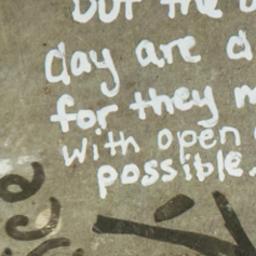 but the
day are
for they
with open
possible.